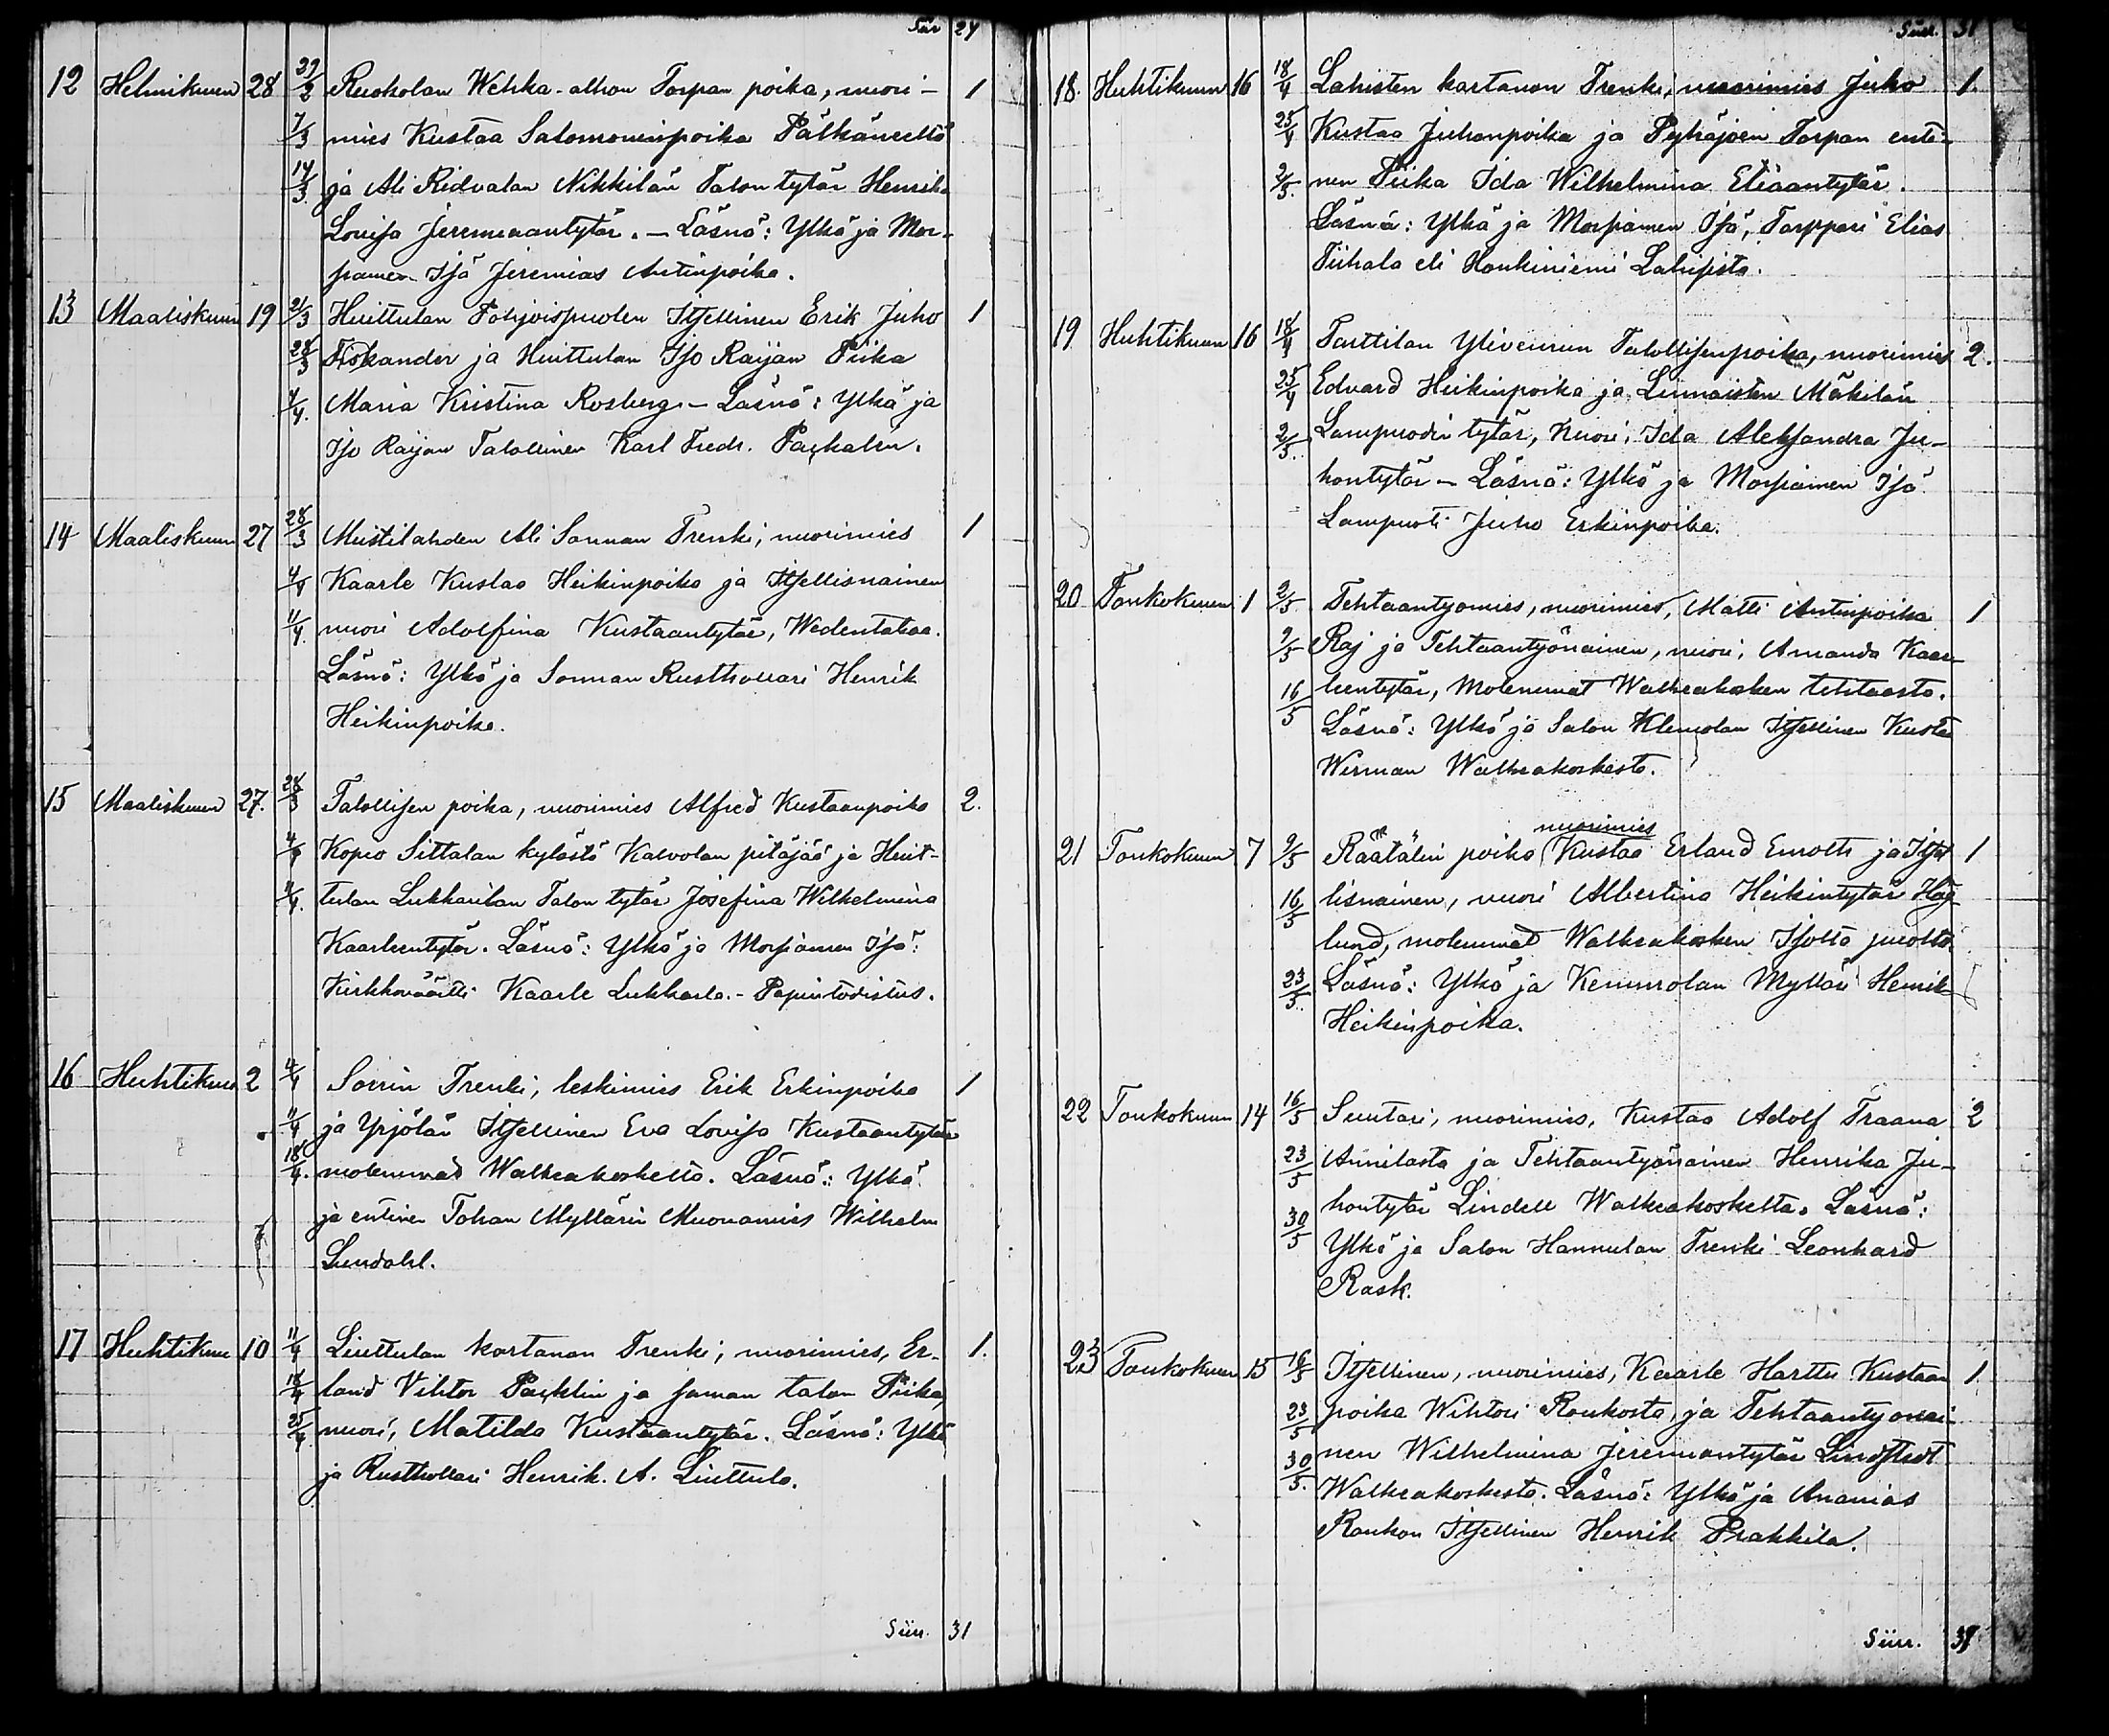 Siir 24
12 Helmikuun 28 29/2 Ruokolan Wehka-alhon Torpan poika, nuori- 1
7/3 mies Kustaa Salomoninpoika Pälkäneeltä
14/3 ja Ali Ridvalan Nikkilän Talon tytär Henrika
Lovisa Jeremiaantytär. – Läsnä: Ylkä ja Mor-
siamen Isä Jeremias Antinpoika.
13 Maaliskuun 19 21/3 Huittulan Pohjoispuolen Itsellinen Erik Juho 1
28/3 Fiskander ja Huittulan Iso Raijan Piika
4/4. Maria Kristina Rosberg. – Läsnä: Ylkä ja
Iso Raijan Talollinen Karl Fredr. Packalen.
14 Maaliskuun 27 28/3 Mustilahden Ali Sonnan Trenki, nuorimies 1
4/4 Kaarle Kustaa Heikinpoika ja Itsellisnainen
11/4. nuori Adolfina Kustaantytär, Wedentakaa.
Läsnä: Ylkä ja Sonnan Rusthollari Henrik
Heikinpoika.
15 Maaliskuun 27. 28/3 Talollisen poika, nuorimies Alfred Kustaanpoika 2.
4/4 Kopio Sittalan kylästä Kalvolan pitäjää ja Huit-
11/4. tulan Lukkarilan Talon tytär Josefina Wilhelmina
Kaarleentytär. Läsnä: Ylkä ja Morsiamen Isä:
Kirkkoväärtti Kaarle Lukkarla. – Papintodistus.
16 Huhtikuu 2 4/4 Sorrin Trenki, leskimies Erik Erkinpoika 1
11/4 ja Yrjölän Itsellinen Eva Lovisa Kustaantytär
18/4. molemmad Walkeakoskelta. Läsnä: Ylkä
ja entinen Tohan Myllärin Muonamies Wilhelm
Sundahl.
17 Huhtikuu 10 11/4 Liuttulan kartanon Trenki, nuorimies, Er- 1.
18/4 land Vihtor Packlin ja saman talon Piika,
25/4 nuori, Matilda Kustaantytär. Läsnä: Ylkä
ja Rusthollari Henrik. A. Liuttula.
Siirr. 31
Siirr. 31
18. Huhtikuun 16 18/4 Lahisten kartanon Trenki, nuorimies Juho 1.
25/4 Kustaa Juhonpoika ja Pyhäjoen Torpan enti-
2/5. nen Piika Ida Wilhelmina Eliaantytär.
Läsnä: Ylkä ja Morsiamen Isä, Torppari Elias
Tiihala eli Honkiniemi Lahisista.
19 Huhtikuun 16 18/4 Tarttilan Yliveurun Talollisenpoika, nuorimies 2.
25/4 Edvard Heikinpoika ja Linnaisten Mäkilän
2/5. Lampuodin tytär, Nuori, Ida Aleksandra Ju-
hontytär – Läsnä: Ylkä ja Morsiamen Isä
Lampuoti Juho Erkinpoika.
20 Toukokuun 1 2/5 Tehtaantyömies, nuorimies, Matti Antinpoika 1
9/5 Raj ja Tehtaantyönainen, nuori, Amanda Kaar-
16/5 leentytär, Molemmat Walkeakosken tehtaasta.
Läsnä: Ylkä ja Salon Klemolan Itsellinen Kustaa
Wirman Walkeakoskesta.
nuorimies
21 Toukokuun 7 9/5 Räätälin poika Kustaa Erland Enrotti ja Itsel 1
16/5 lisnainen, nuori Albertina Heikintytär Hag-
lund, molemmat Walkeakosken Isolta puolta.
23/5. Läsnä: Ylkä ja Kemmolan Mylläri Henrik
Heikinpoika.
22 Toukokuun 14 16/5 Suutari, nuorimies, Kustaa Adolf Traana 2
23/5 Annilasta ja Tehtaantyönainen Henrika Ju-
30/5 hontytär Lindell Walkeakoskelta. Läsnä:
Ylkä ja Salon Hannulan Trenki Leonhard
Rask.
23 Toukokuun 15 16/5 Itsellinen, nuorimies, Kaarle Harttu Kustaan 1
23/5 poika Wihtori Roukosta, ja Tehtaantyönai-
30/5. nen Wilhelmina Jeremiantytär Lindstedt
Walkeakoskesta. Läsnä: Ylkä ja Ananias
Roukon Itsellinen Henrik Prakkila.
Siirr. 39